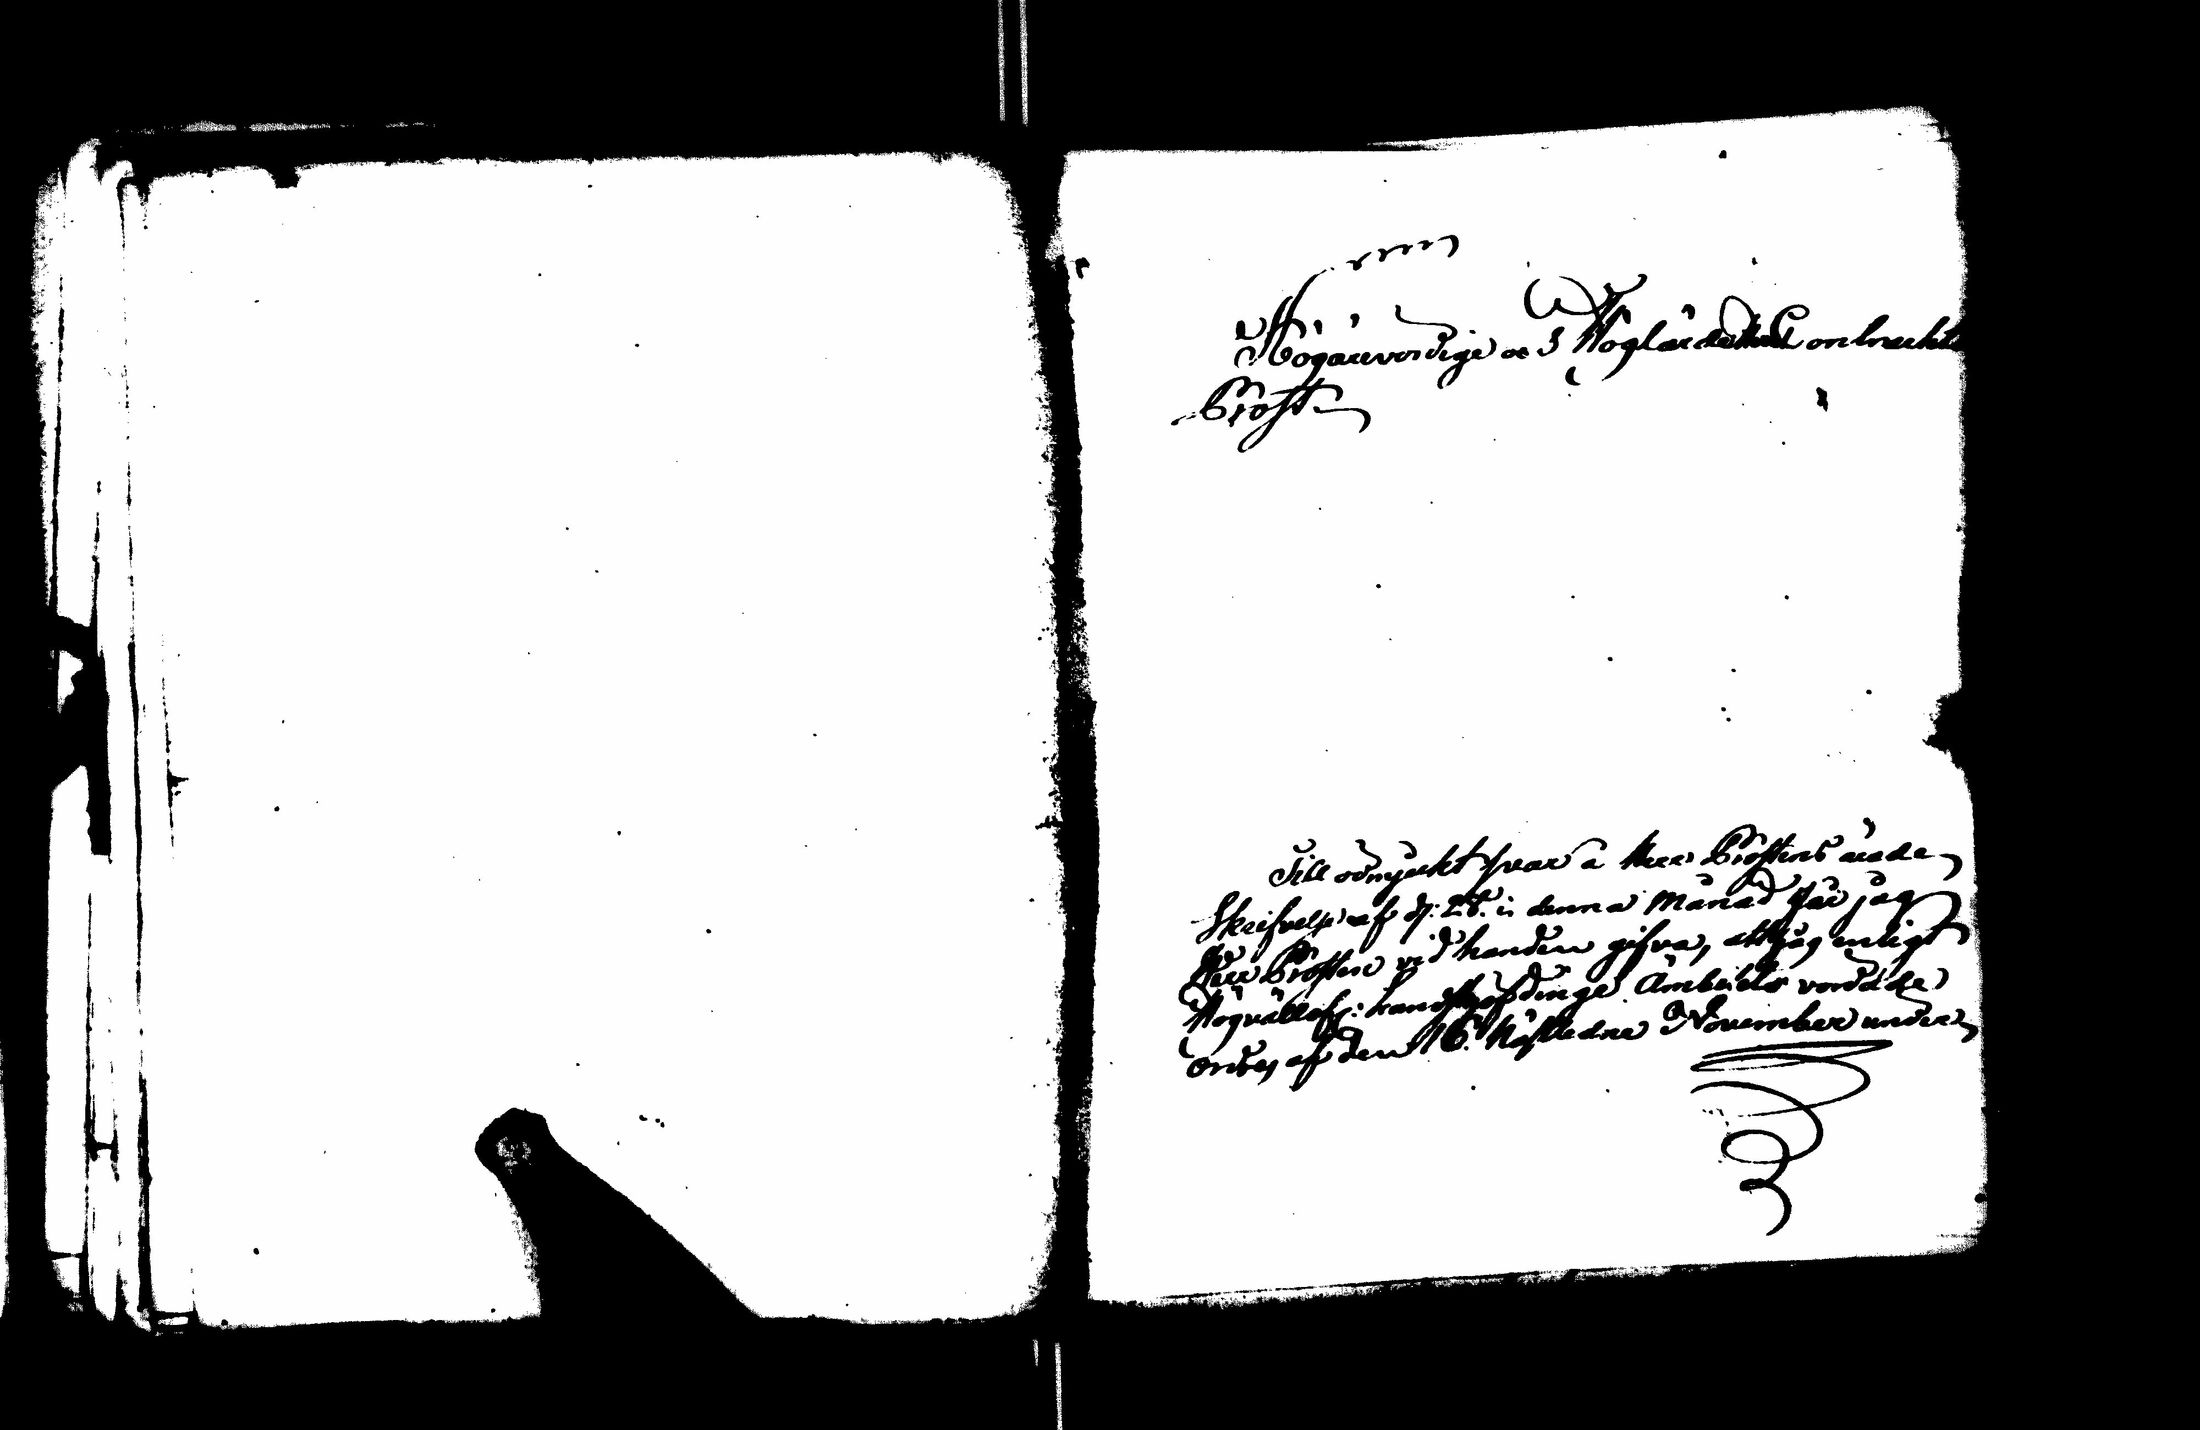 Högärevördige och Höglärde Herr Contracts
Prost
Till ödmjukt svar å Herr Prostens ärade
Skrifvelse af d: 28. i denna Månad får jag
Herr Prosten vid handen gifva, att jag enligt
Högvällofl: Landshöfdinge Ämbetets vördade
ordes af den 16. Nästledne November under